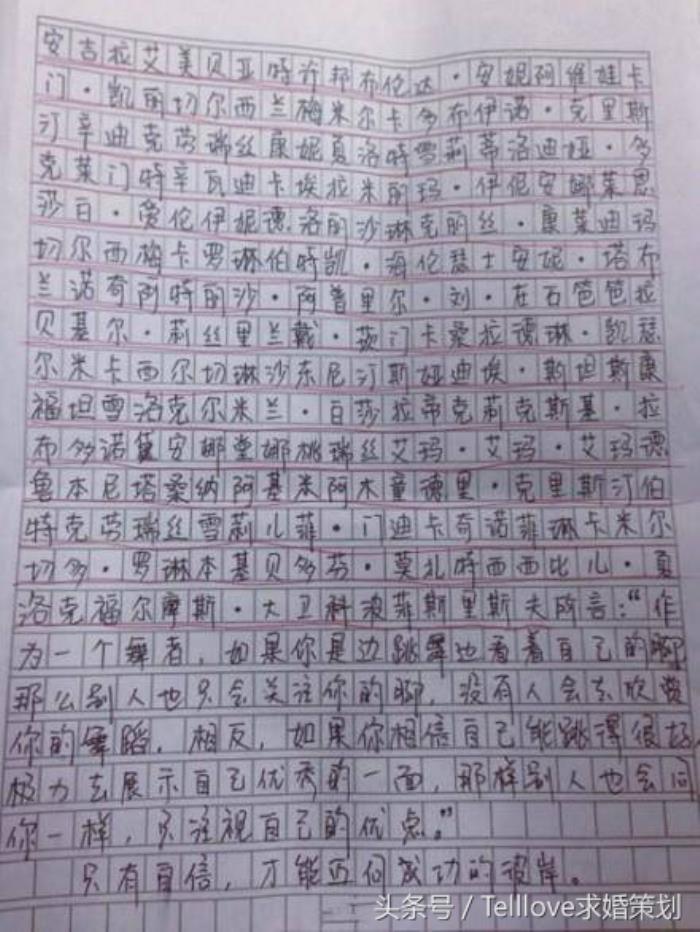 安吉拉艾美贝亚特许邦布伦达·安妮阿维娃卡
门·凯丽切尔西兰梅米尔卡多布伊诺·克里斯
汀辛迪克劳瑞丝康妮夏洛特雪莉蒂洛迪娅·多
克莱门特辛瓦迪卡埃拉米丽玛·伊伲安娜莱思
莎白·爱伦伊妮德洛丽沙琳克丽丝·康莱迪玛
切尔西梅卡罗琳伯特凯·海伦瑟士安妮·塔布
兰诺奇阿特丽沙·阿普里尔·刘·在石笆笆拉
贝基尔·莉丝里兰戴·茨门卡桑拉德琳·凯瑟
尔米卡西尔切琳沙东尼汀斯娅迪埃·斯坦斯康
福坦雪洛克尔米兰·白莎拉帝克莉克斯基·拉
布多诺黛安娜堂娜桃瑞丝艾玛·艾玛·艾玛德
鲁本尼塔桑纳阿基米阿木童德里·克里斯汀伯
特克劳瑞丝雪莉儿菲·门迪卡奇诺菲琳卡米尔
切多·罗琳本基贝多芬·莫扎特西西比儿·夏
洛克福尔摩斯·大卫科波菲斯里斯夫所言：“作
为一个舞者，如果你是边跳舞边看着自己的脚
那么别人也只会关注你的脚，没有人会去欣赏
你的舞蹈。相反，如果你相信自己能跳得很好，
极力去展示自己优秀的一面，那样别人也会同
你一样，只注视自己的优点。”
只有自信，才能迈向成功的彼岸。
头条号 / Telllove求婚策划